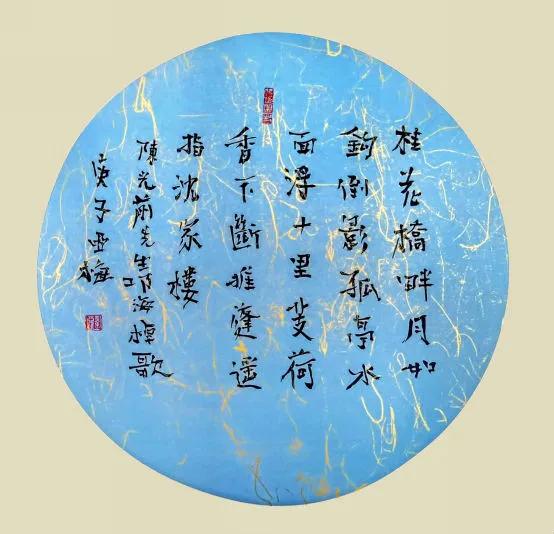 桂花橋畔月如
鉤倒影孤亭水
面浮十里芰荷
香不斷推遥
指沈家樓
陳光先生海棹歌
庚子亚梅